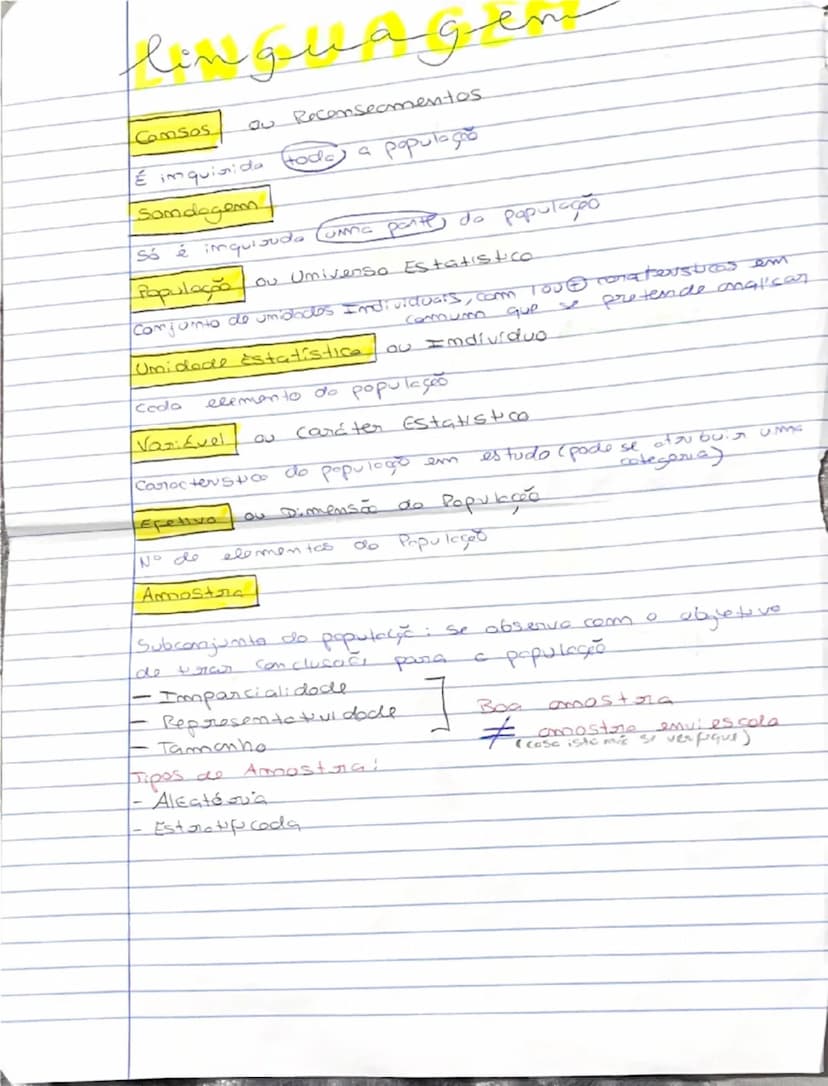 LINGUAGEM
linguagem
Censos ou Reconseamentos
É inquirida toda a população
Sondagem
Só é inquirida uma parte da população
População ou Universo Estatístico
Conjunto de unidades Individuais, com 1 ou + características em
comum que se pretende analisar
Unidade Estatística ou Indivíduo
Cada elemento da população
Variável ou Caráter Estatístico
Característica da população em estudo (pode se atribuir uma
categoria)
Efetivo ou Dimensão da População
Nº de elementos da População
Amostra
Subconjunto da população: se observa com o objetivo
de tirar conclusões para a população
- Imparcialidade
- Representatividade
- Tamanho
Boa amostra
≠ amostra enviesada
(caso isto não se verifique)
Tipos de Amostra:
- Aleatória
- Estratificada